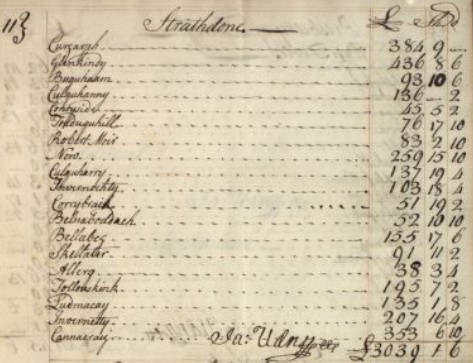 113 Strathdone. £ Sh D
Curgarph 384 9 —
Glenkindy 436 8 6
Buquhaam 93 10 6
Culquhanny 136 — 2
Contyside 45 5 2
Tolduquhill 76 17 10
Robert Moir 83 2 10
New. 259 15 10
Culquharry 137 19 4
Invernochty 103 18 4
Corrybreck 51 19 2
Belnaboddach 52 10 10
Bellabeg 155 17 6
Skellater 91 11 2
Allerg 38 3 4
Tolloskeirk 195 7 2
Ludmacay 135 1 8
Invernetty 207 16 4
Cannacray 353 6 10
Ja: Udny £3039 1 6